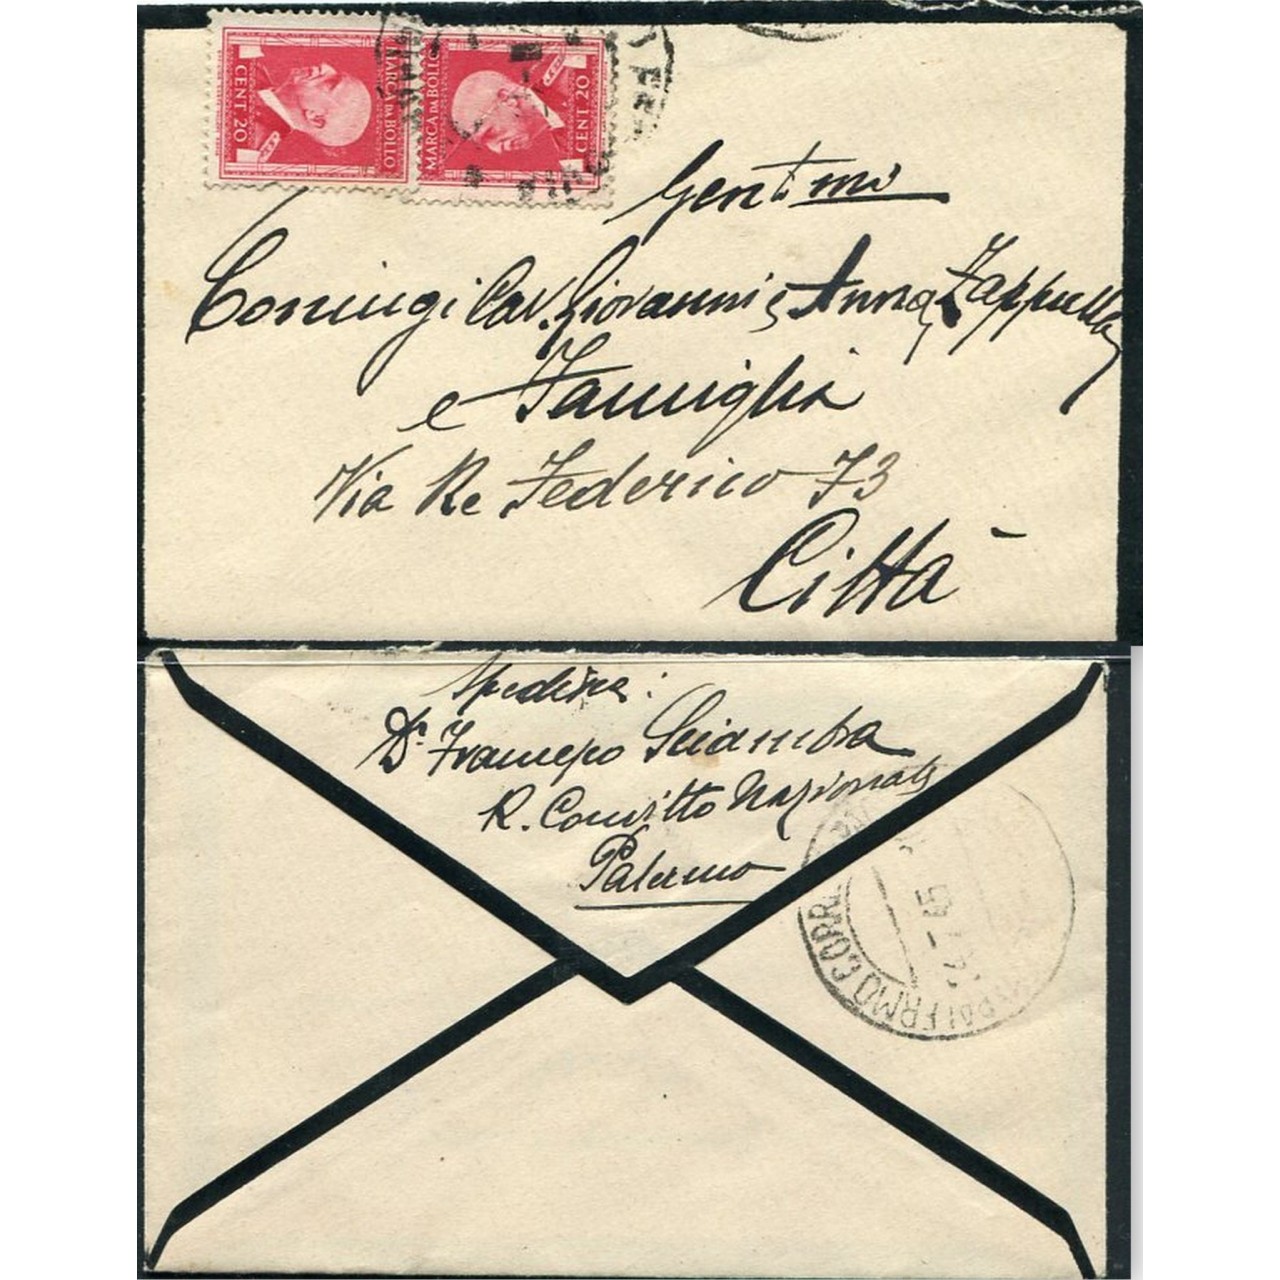 CENT. 20
MARCA DA BOLLO
MARCA DA BOLLO
CENT. 20
Gentmi
Coniugi Cav. Giovanni e Anna Zappulla
e Famiglia
Via Re Federico 73
Città
Spedisce:
Dr. Francesco Sciambra
R. Convitto Nazionale
Palermo
PALERMO CORR
45